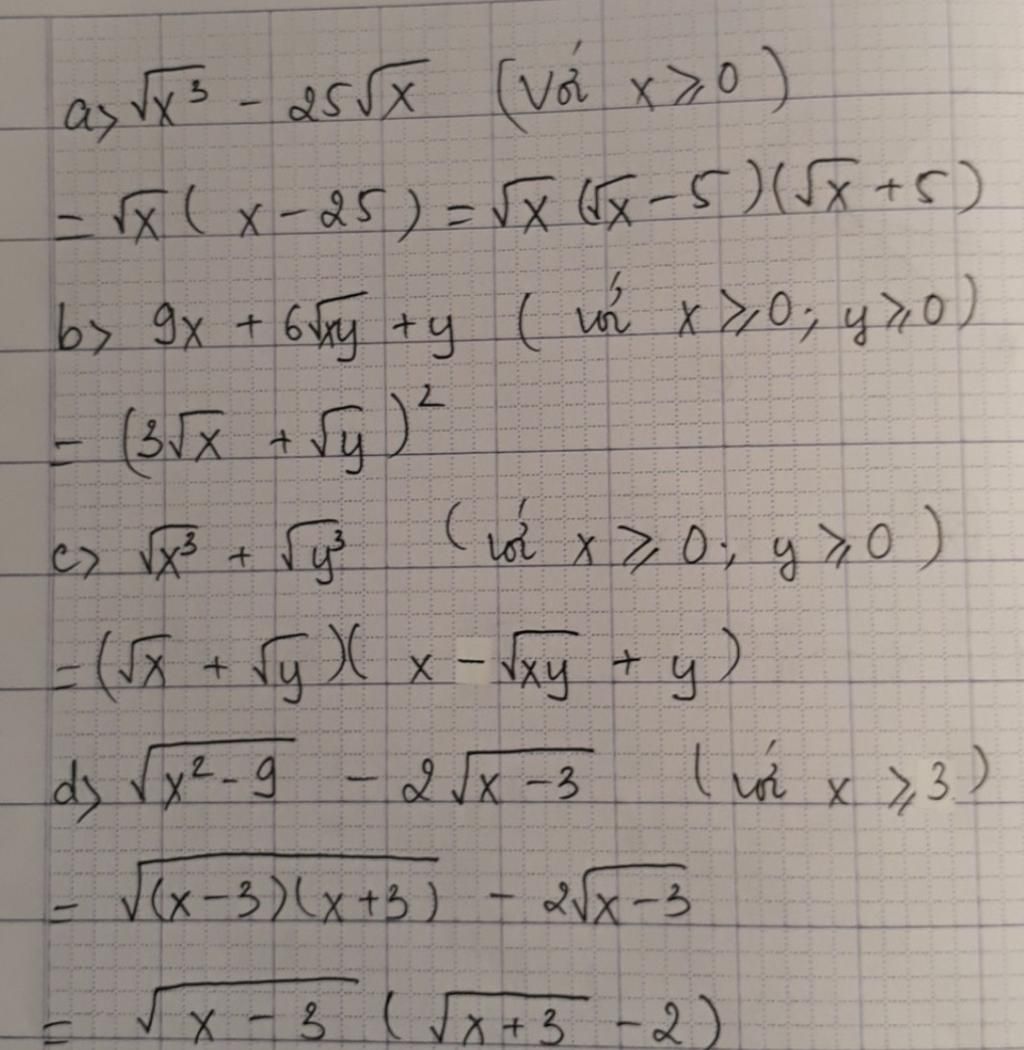 a> √x³ - 25√x (Với x ≥ 0)
= √x ( x - 25 ) = √x (√x - 5)(√x + 5)
b> 9x + 6√xy + y ( với x ≥ 0; y ≥ 0)
= (3√x + √y)²
c> √x³ + √y³ (với x ≥ 0; y ≥ 0)
= (√x + √y)( x - √xy + y)
d> √(x² - 9) - 2√(x - 3) (với x ≥ 3)
= √((x-3)(x+3)) - 2√(x-3)
= √(x - 3) (√(x+3) - 2)